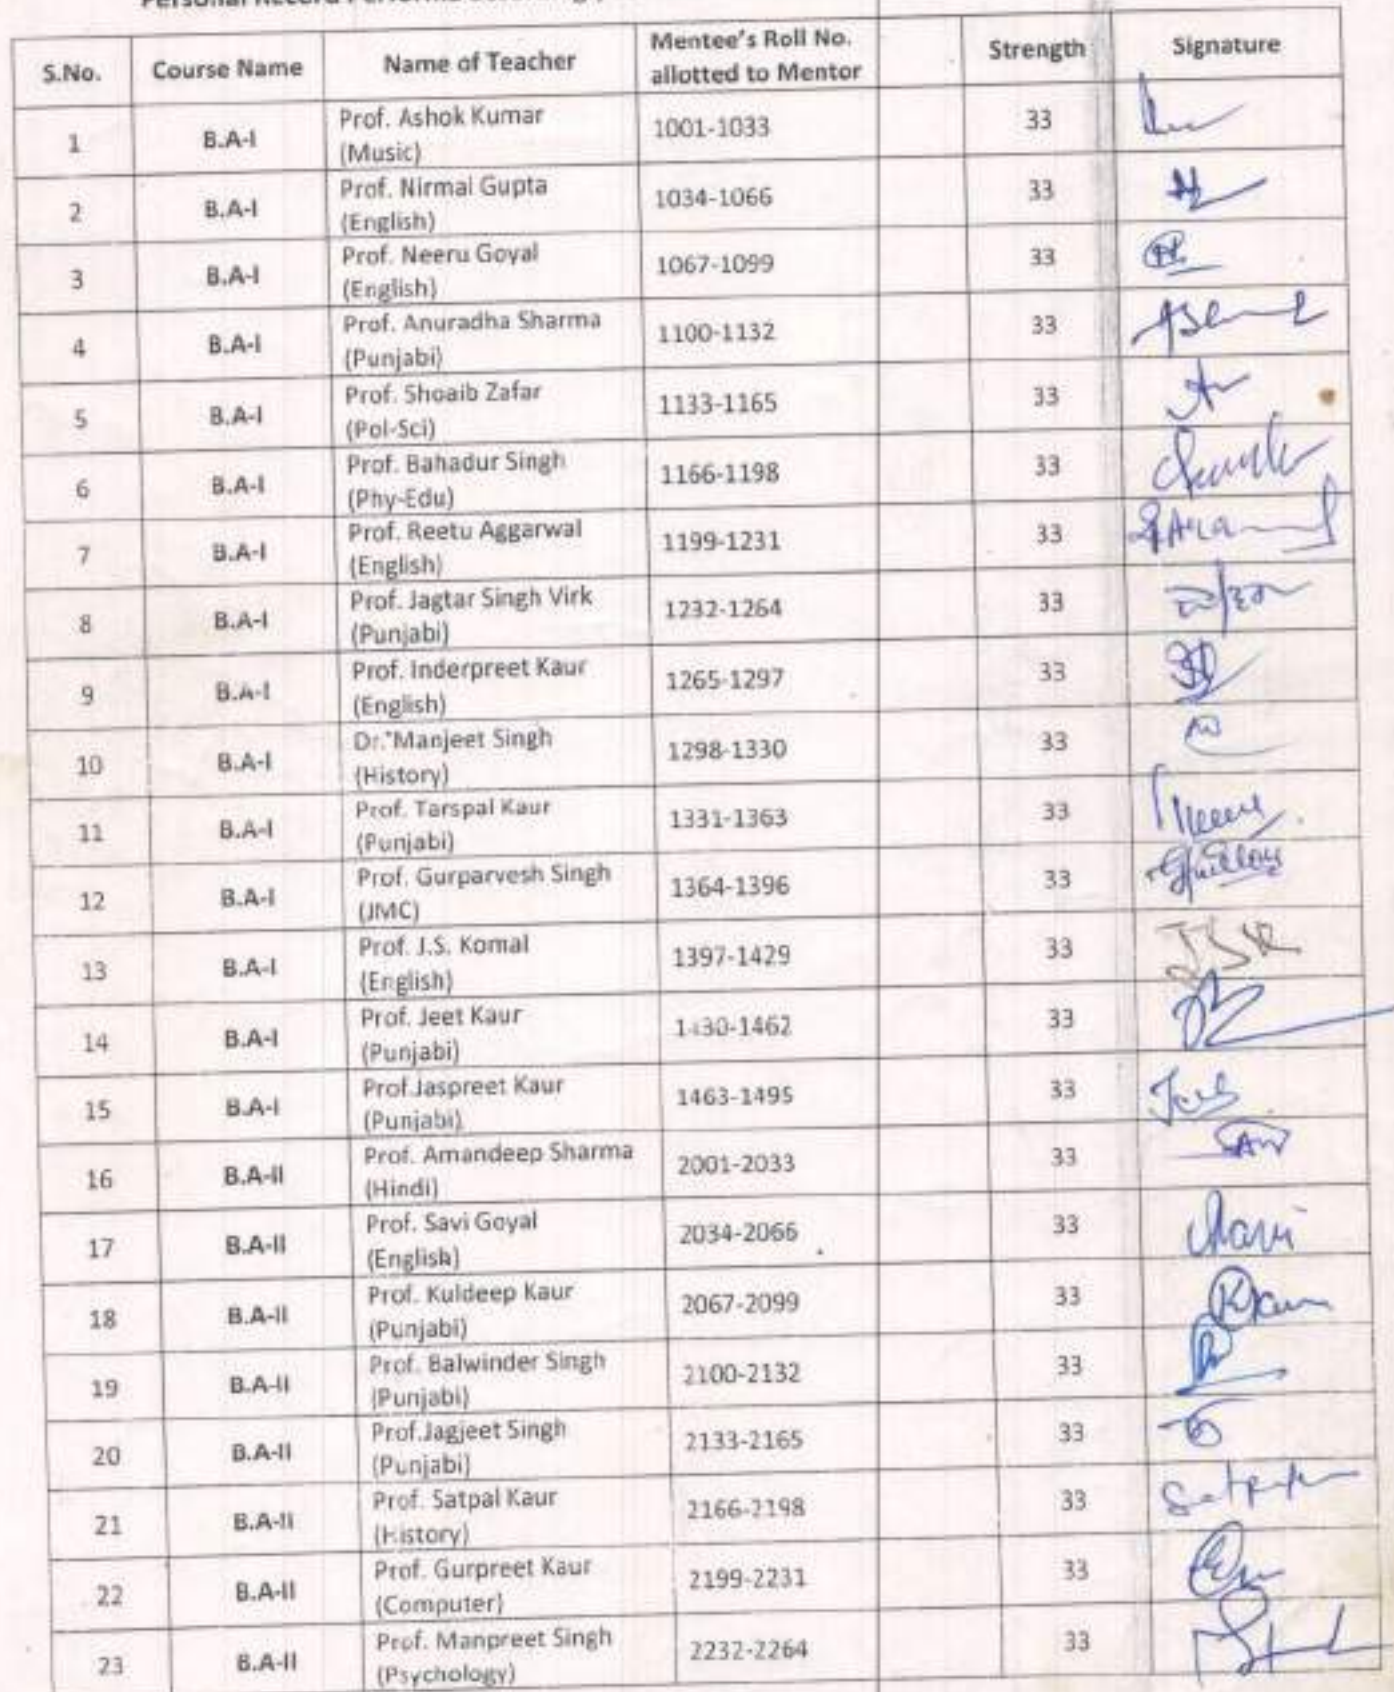 S.No. Course Name Name of Teacher Mentee's Roll No. allotted to Mentor Strength Signature
1 B.A-I Prof. Ashok Kumar (Music) 1001-1033 33
2 B.A-I Prof. Nirmal Gupta (English) 1034-1066 33
3 B.A-I Prof. Neeru Goyal (English) 1067-1099 33
4 B.A-I Prof. Anuradha Sharma (Punjabi) 1100-1132 33
5 B.A-I Prof. Shoaib Zafar (Pol-Sci) 1133-1165 33
6 B.A-I Prof. Bahadur Singh (Phy-Edu) 1166-1198 33
7 B.A-I Prof. Reetu Aggarwal (English) 1199-1231 33
8 B.A-I Prof. Jagtar Singh Virk (Punjabi) 1232-1264 33
9 B.A-I Prof. Inderpreet Kaur (English) 1265-1297 33
10 B.A-I Dr. Manjeet Singh (History) 1298-1330 33
11 B.A-I Prof. Tarspal Kaur (Punjabi) 1331-1363 33
12 B.A-I Prof. Gurparvesh Singh (JMC) 1364-1396 33
13 B.A-I Prof. J.S. Komal (English) 1397-1429 33 JSK
14 B.A-I Prof. Jeet Kaur (Punjabi) 1430-1462 33
15 B.A-I Prof.Jaspreet Kaur (Punjabi) 1463-1495 33
16 B.A-II Prof. Amandeep Sharma (Hindi) 2001-2033 33
17 B.A-II Prof. Savi Goyal (English) 2034-2066 33
18 B.A-II Prof. Kuldeep Kaur (Punjabi) 2067-2099 33
19 B.A-II Prof. Balwinder Singh (Punjabi) 2100-2132 33
20 B.A-II Prof.Jagjeet Singh (Punjabi) 2133-2165 33
21 B.A-II Prof. Satpal Kaur (History) 2166-2198 33
22 B.A-II Prof. Gurpreet Kaur (Computer) 2199-2231 33
23 B.A-II Prof. Manpreet Singh (Psychology) 2232-2264 33